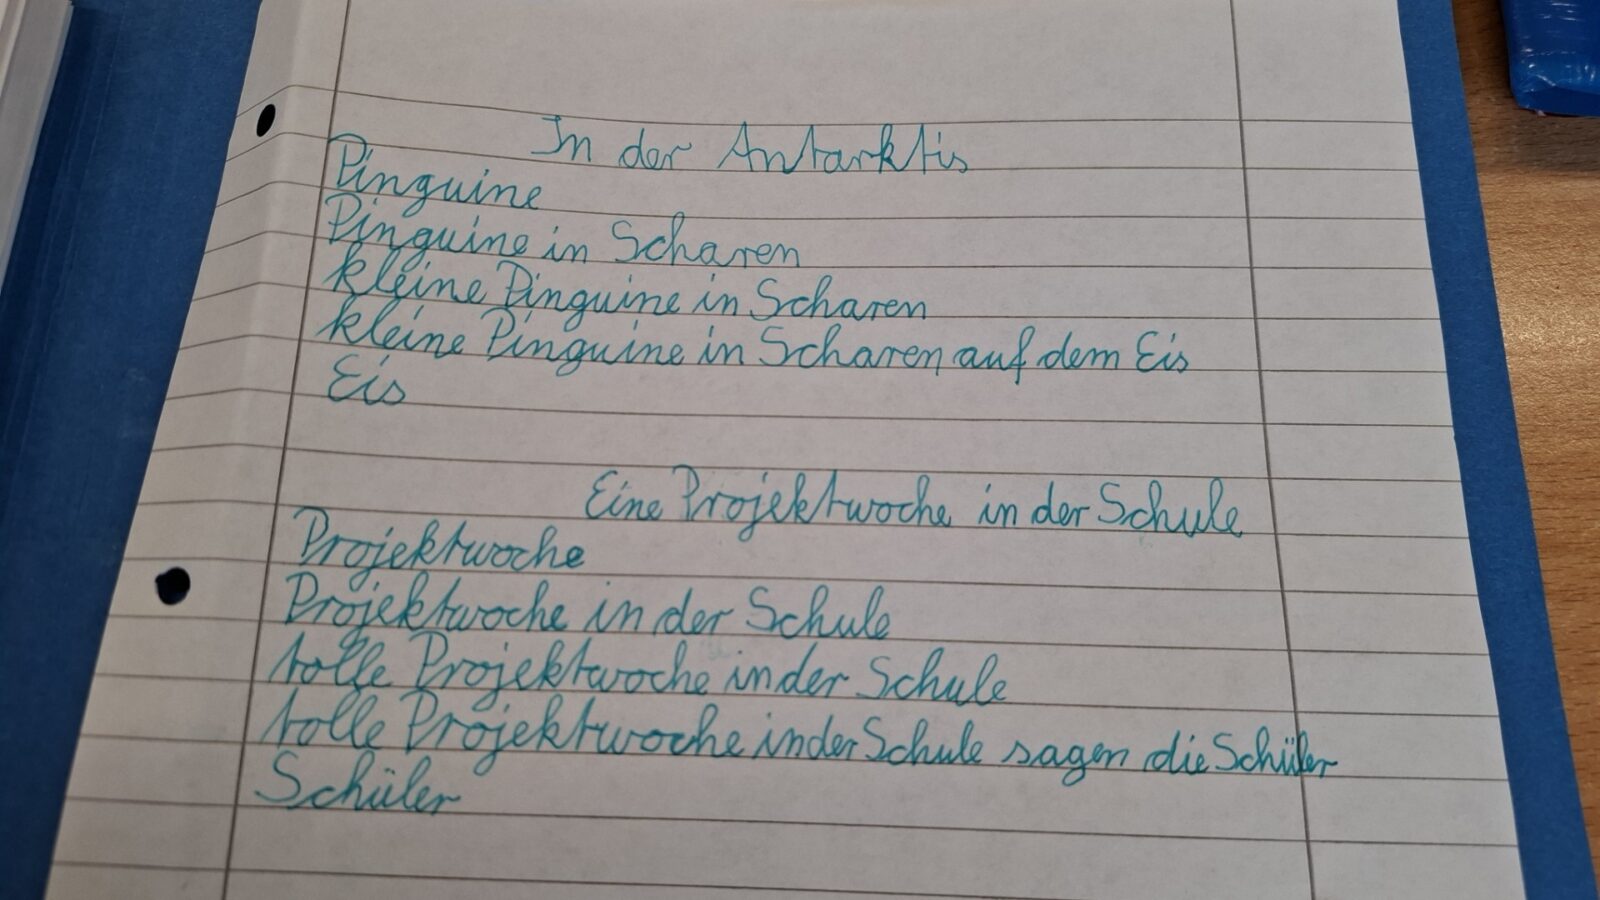 In der Antarktis
Pinguine
Pinguine in Scharen
kleine Pinguine in Scharen
kleine Pinguine in Scharen auf dem Eis
Eis
Eine Projektwoche in der Schule
Projektwoche
Projektwoche in der Schule
tolle Projektwoche in der Schule
tolle Projektwoche in der Schule sagen die Schüler
Schüler